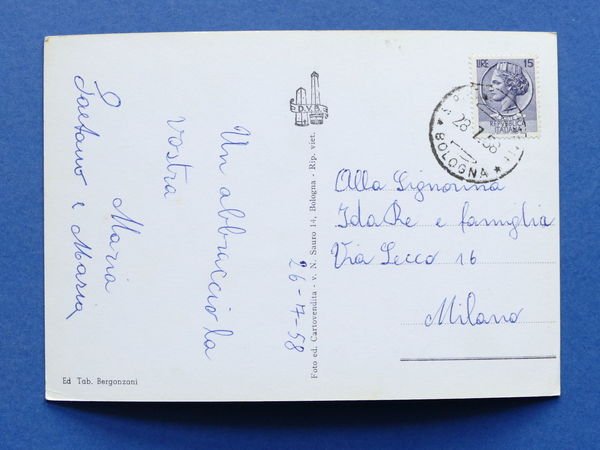 Un abbraccio la
vostra
Maria
Gaetano e Maria
26-7-58
D.V.B.
Foto ed. Cartovendita - v. N. Sauro 14, Bologna - Rip. viet.
Ed Tab. Bergonzoni
LIRE 15
REPVBBLICA
ITALIANA
28 7 58
BOLOGNA
Alla Signorina
Ida Re e famiglia
Via Lecco 16
Milano